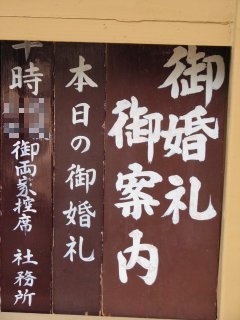 御婚礼
御案内
本日の御婚礼
午時
御両家控席
社務所